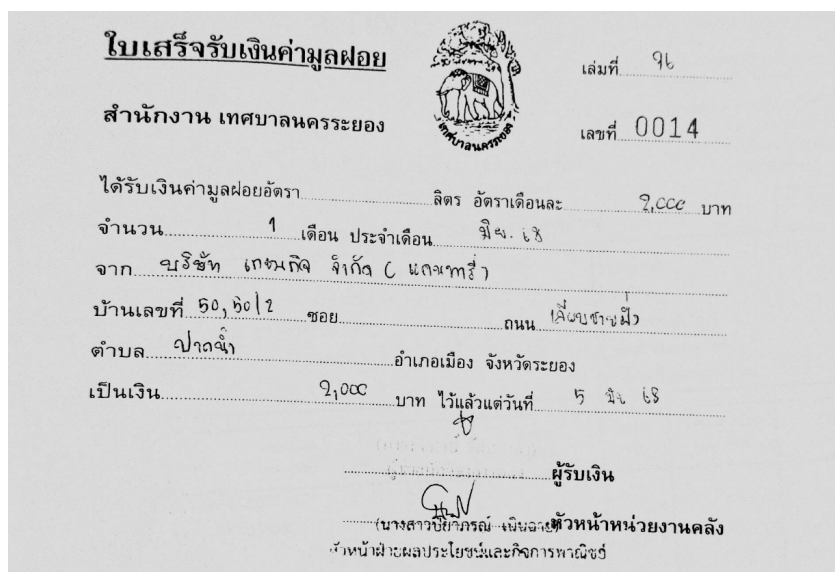 ใบเสร็จรับเงินค่ามูลฝอย
เล่มที่ 96
สำนักงาน เทศบาลนครระยอง
เทศบาลนครระยอง
เลขที่ 0014
ได้รับเงินค่ามูลฝอยอัตรา ลิตร อัตราเดือนละ 2,000 บาท
จำนวน 1 เดือน ประจำเดือน มิย. 68
จาก บริษัท จำกัด (
บ้านเลขที่ 50, 50/2 ซอย ถนน เลียบชายฝั่ง
ตำบล ปากน้ำ อำเภอเมือง จังหวัดระยอง
เป็นเงิน 2,000 บาท ไว้แล้วแต่วันที่ 5 มิย 68
ผู้รับเงิน
(นางสาวปิยาภรณ์ หัวหน้าหน่วยงานคลัง
หัวหน้าฝ่ายผลประโยชน์และกิจการพาณิชย์